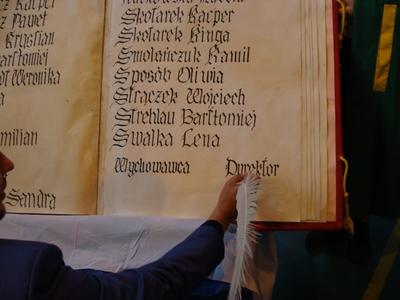 Kacper
Paweł
Krystian
Bartłomiej
Weronika
Sandra
Skolarek Kacper
Skolarek Kinga
Smolańczuk Kamil
Sposób Oliwia
Strączek Wojciech
Strehlau Bartłomiej
Swałka Lena
Wychowawca Dyrektor